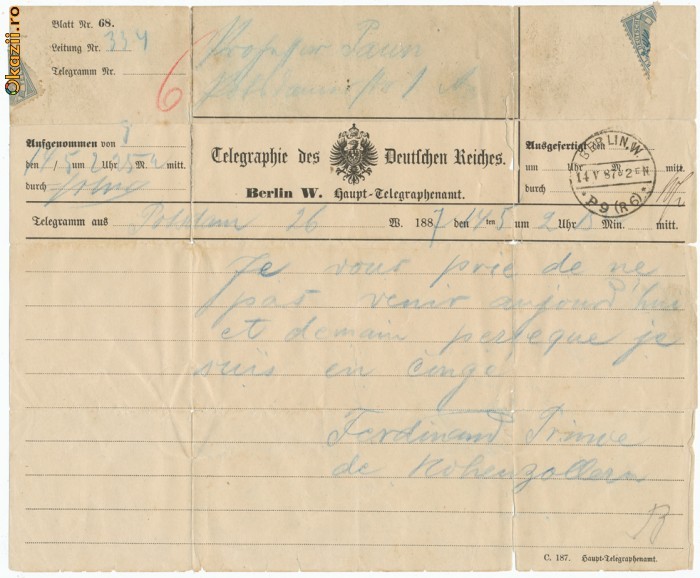 Okazii.ro
Blatt Nr. 68.
Leitung Nr. 334
Telegramm Nr.
6
Professor Paun
Potsdamerstr
Aufgenommen von
den 14/5 um 2 Uhr 25 M. mitt.
durch
Telegraphie des Deutschen Reiches.
Berlin W. Haupt-Telegraphenamt.
Ausgefertigt den
um Uhr M. mitt.
durch
BERLIN, W.
14 V 87 2 N
P 9 (R 6)
Telegramm aus Potsdam 26 W. 1887 den 14/5 ten um 2 Uhr 8 Min. mitt.
Je vous prie de ne
pas venir aujourd'hui
et demain perseque je
suis en congé
Ferdinand Prince
de Hohenzollern
C. 187. Haupt-Telegraphenamt.